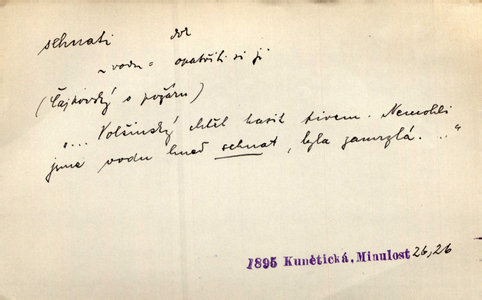 sehnati dok
~ vodu = opatřiti si ji
(Čajkovský o požáru)
„... Volšinský chtěl hasit pivem. Nemohli
jsme vodu hned sehnat, byla zamrzlá. ..."
1895 Kunětická, Minulost 26,26